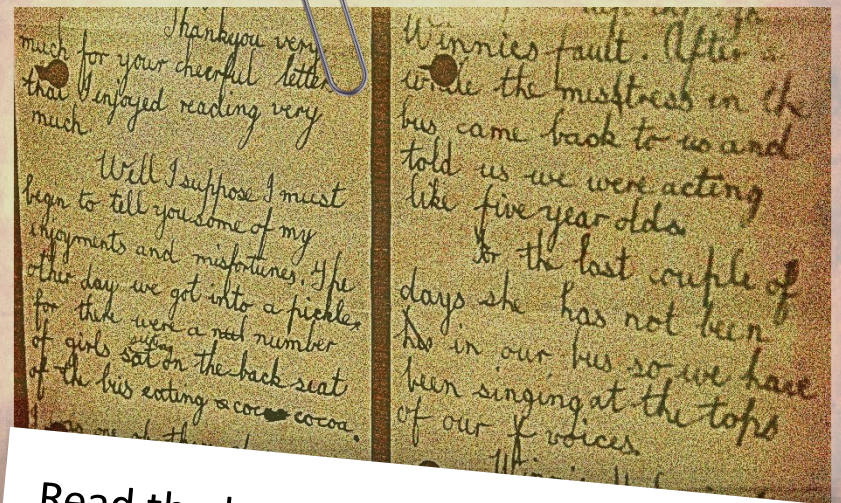 Thankyou very
much for your cheerful letter
that I injoyed reading very
much.
Well I suppose I must
begin to tell you some of my
injoyments and misfortunes. The
other day we got into a pickle,
for there were a number
of girls sitting on the back seat
of the bus eating cocoa.
Winnies fault. After a
while the misstress in the
bus came back to us and
told us we were acting
like five year olds.
For the last couple of
days she has not been
in our bus so we have
been singing at the tops
of our voices.
Read the